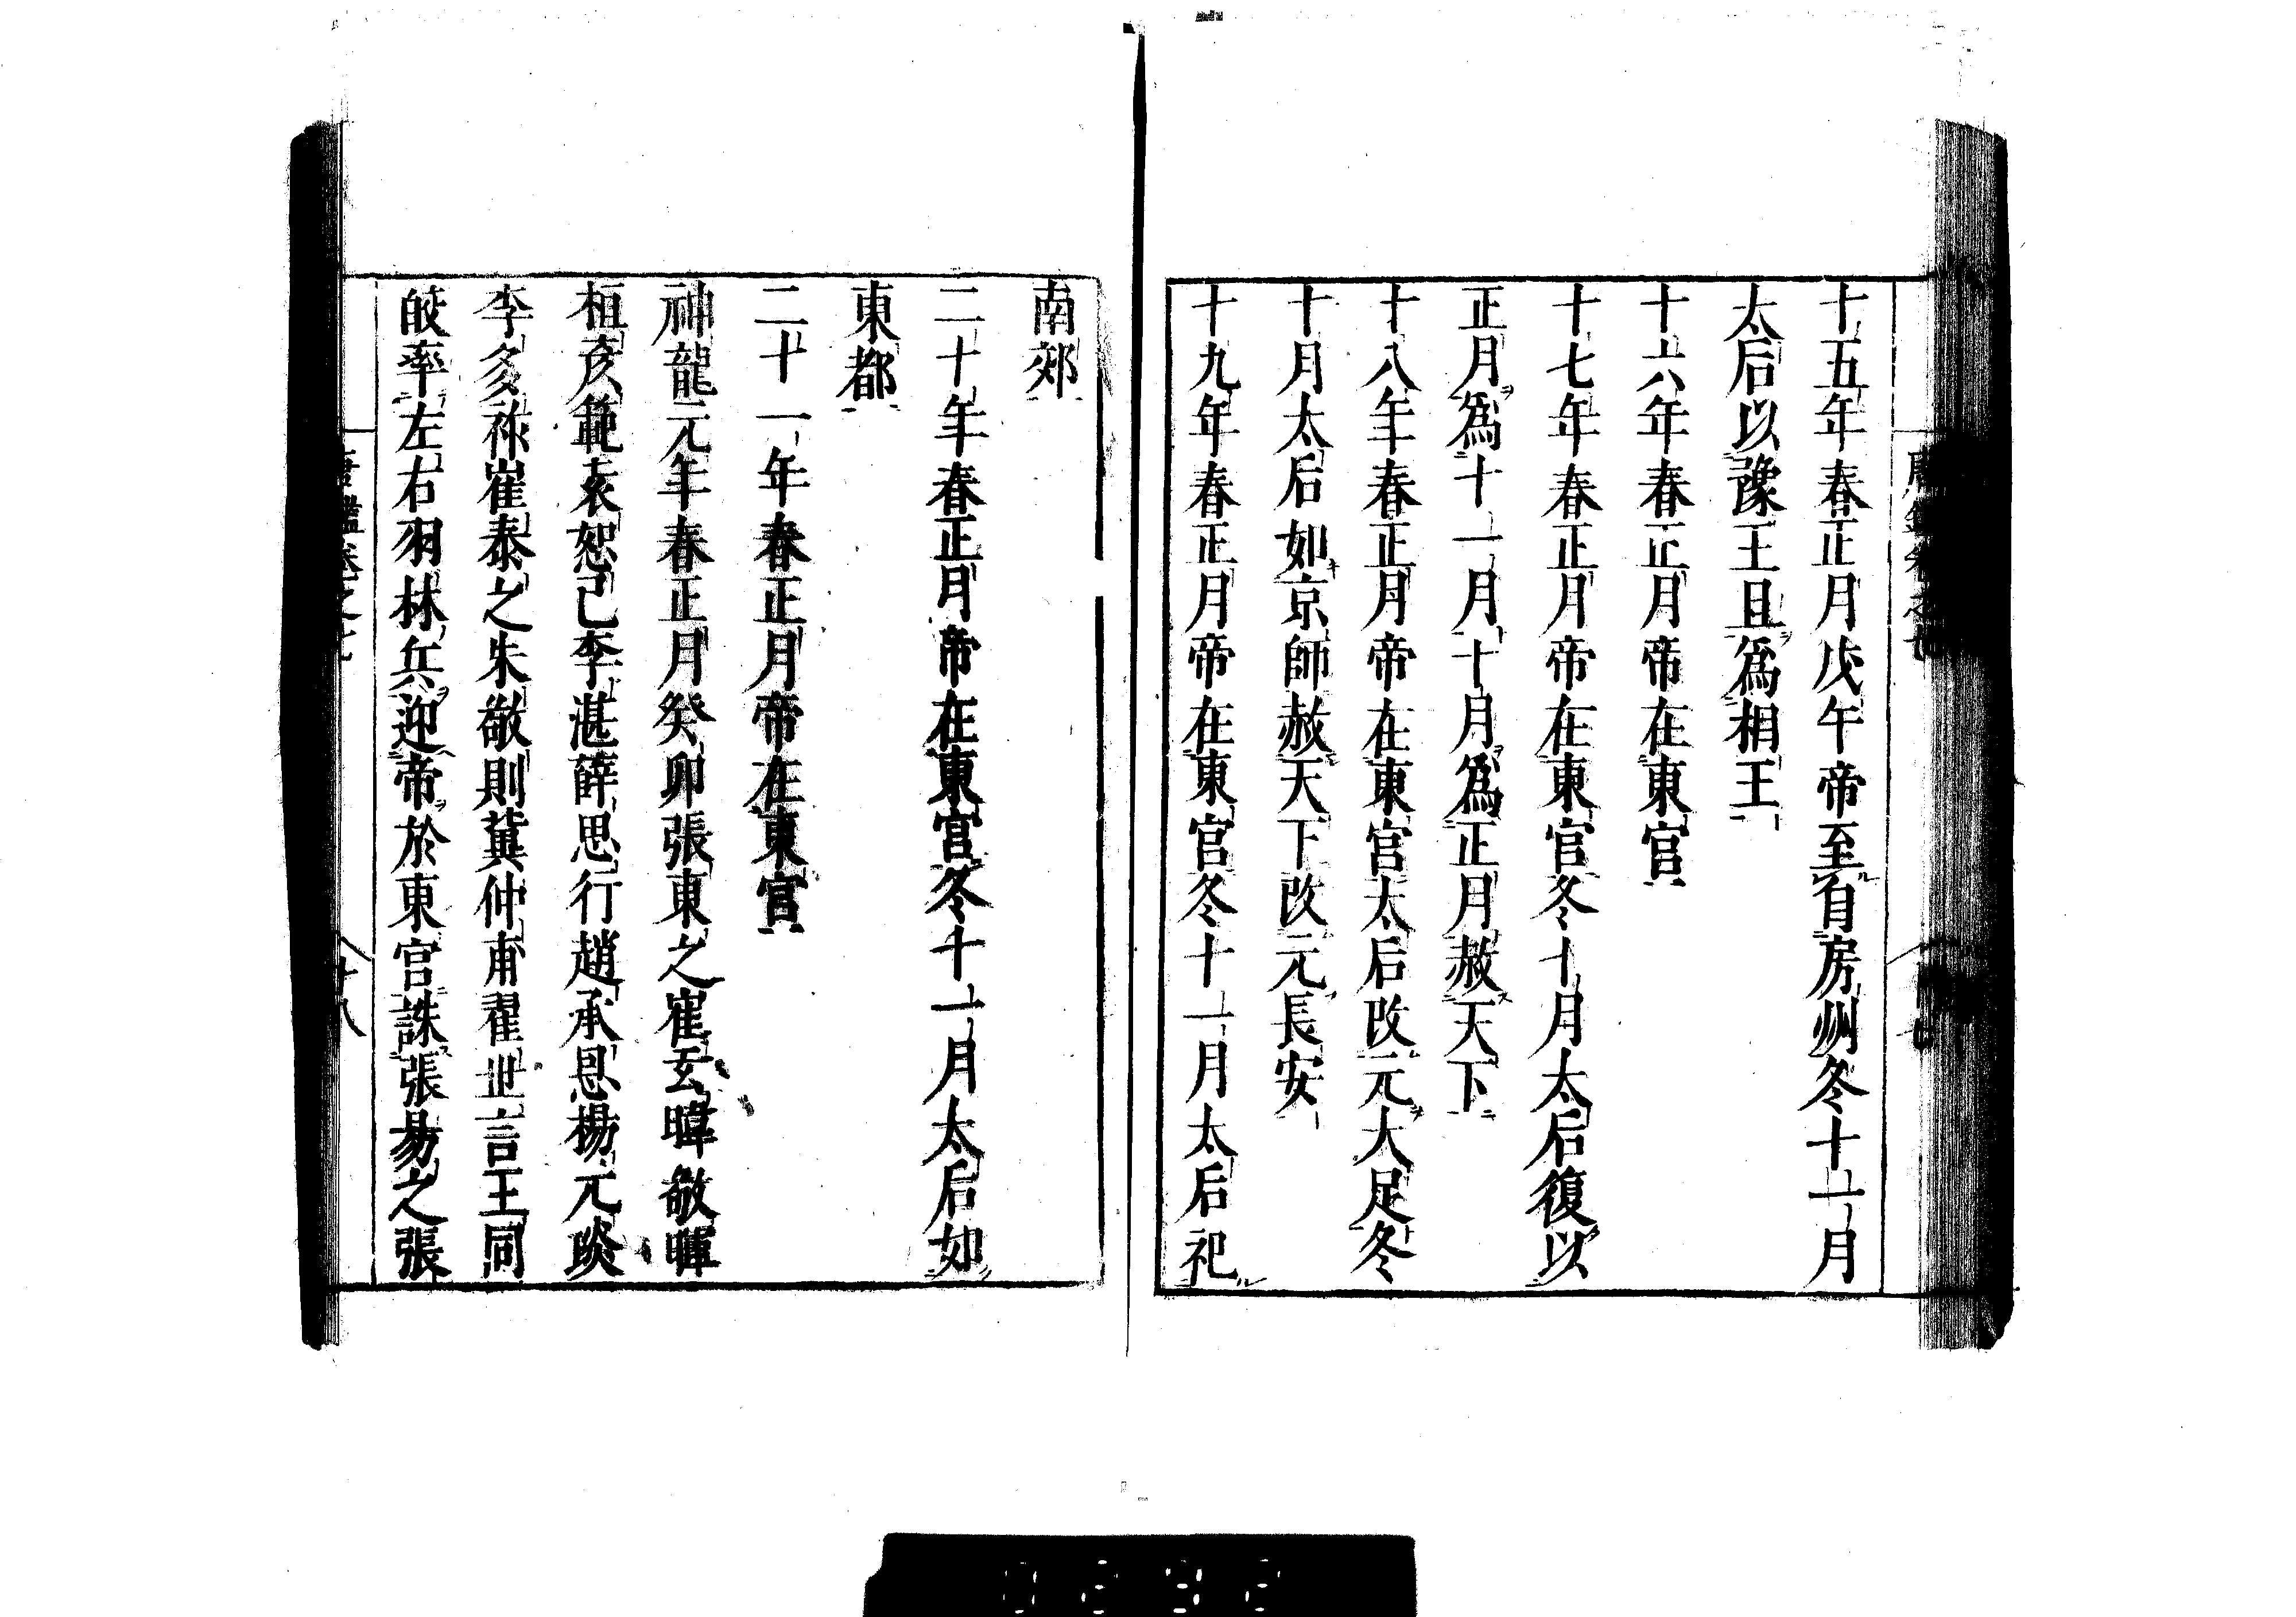 十五年春正月戊午帝至自房州冬十一月
太后以豫王旦爲相王
十六年春正月帝在東宮
十七年春正月帝在東宮冬十月太后復以
正月爲十一月十月爲正月赦天下
十八年春正月帝在東宮太后改元大足冬
十月太后如京師赦天下改元長安
十九年春正月帝在東宮冬十一月太后祀
南郊
二十年春正月帝在東宮冬十一月太后如
東都
二十一年春正月帝在東宮
神龍元年春正月癸卯張東之崔玄暐敬暉
桓彦範袁恕己李湛薛思行趙承恩楊元琰
李多祚崔泰之朱敬則冀仲甫翟世言王同
皎率左右羽林兵迎帝於東宮誅張易之張
唐鑑卷之七
十八